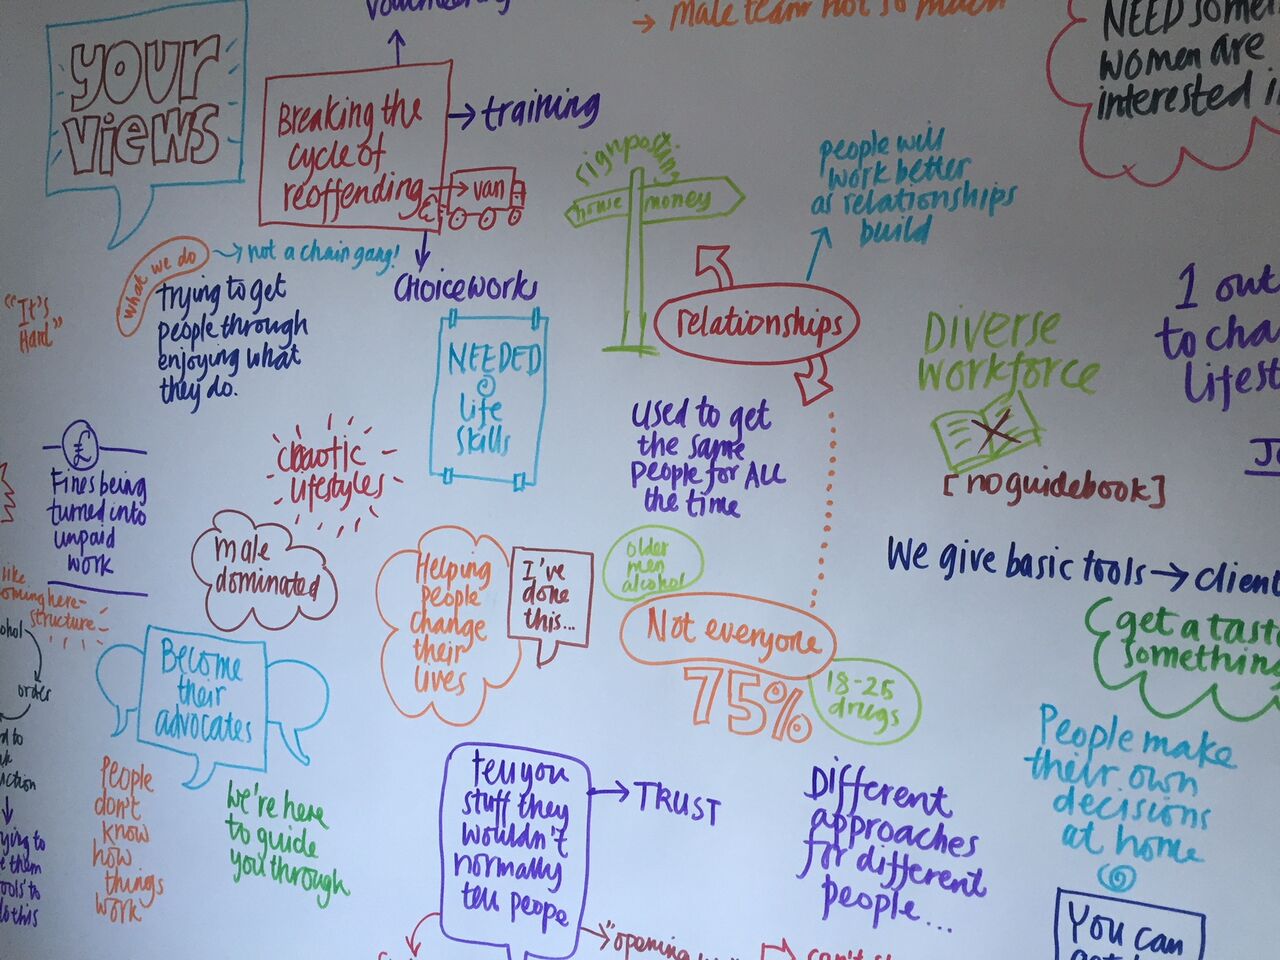 volunteering
→ Male team not so much
NEED
women are
interested
YOUR
VIEWS
Breaking the
cycle of
reoffending
→ training
→ van
signposting
house
money
people will
work better
as relationships
build
what we do
→ not a chain gang!
trying to get
people through
enjoying what
they do.
choiceworks
"It's
Hard"
NEEDED
life
skills
relationships
DIVERSE
WORKFORCE
[no guidebook]
1 out
to
£
Fines being
turned into
unpaid
work
chaotic
lifestyles
used to get
the same
people for ALL
the time
male
dominated
Helping
people
change
their
lives
I've
done
this...
older
men
alcohol
Not everyone
75%
18-25
drugs
We give basic tools →
get a
something
like
structure
order
Become
their
advocates
People
don't
know
how
things
work
We're here
to guide
you through
tell you
stuff they
wouldn't
normally
tell people
→ TRUST
Different
approaches
for different
people...
People make
their own
decisions
at home
to
them
to
this
"opening
You can